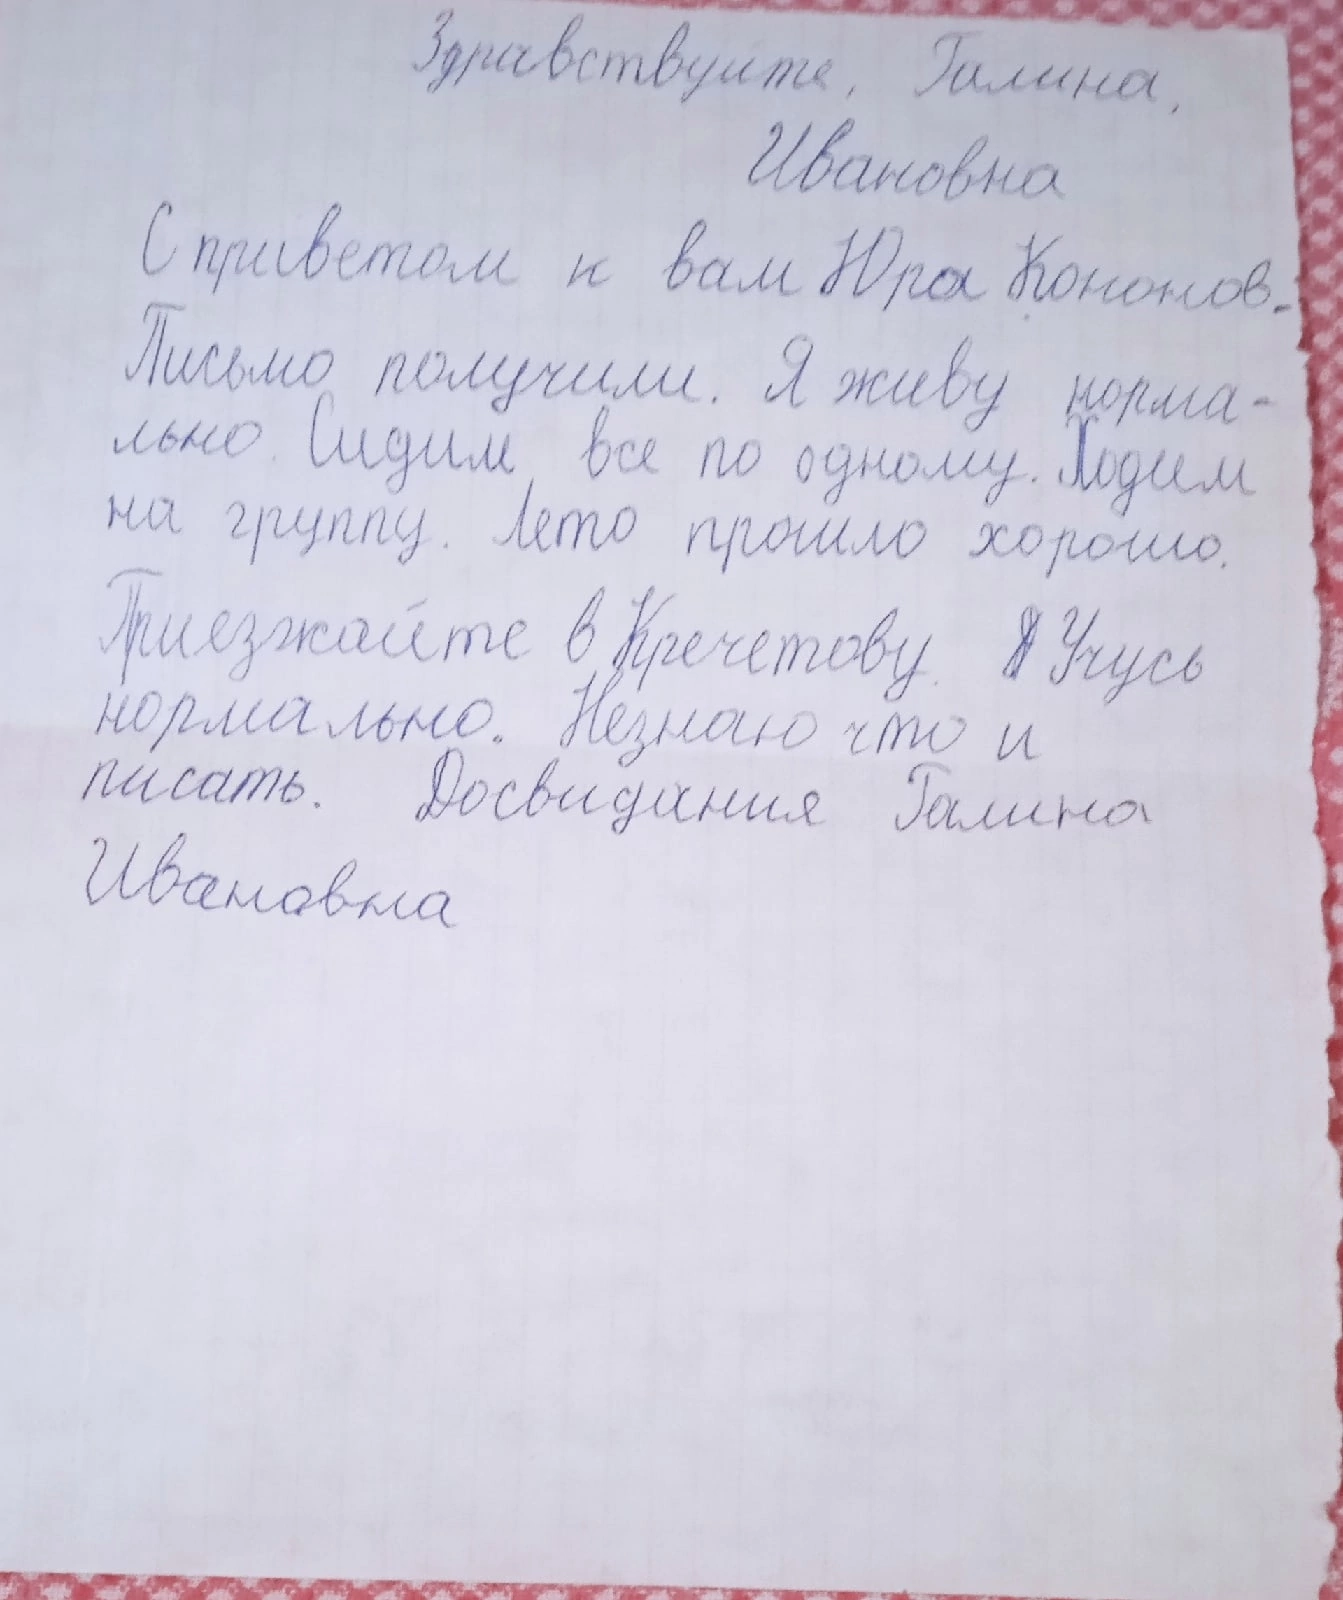 Здравствуйте, Галина,
Ивановна
С приветом к вам Юра Кононов.
Письмо получили. Я живу норма-
льно. Сидим все по одному. Ходим
на группу. Лето прошло хорошо.
Приезжайте в Кречетову. Учусь
нормально. Незнаю что и
писать. Досвидания Галина
Ивановна